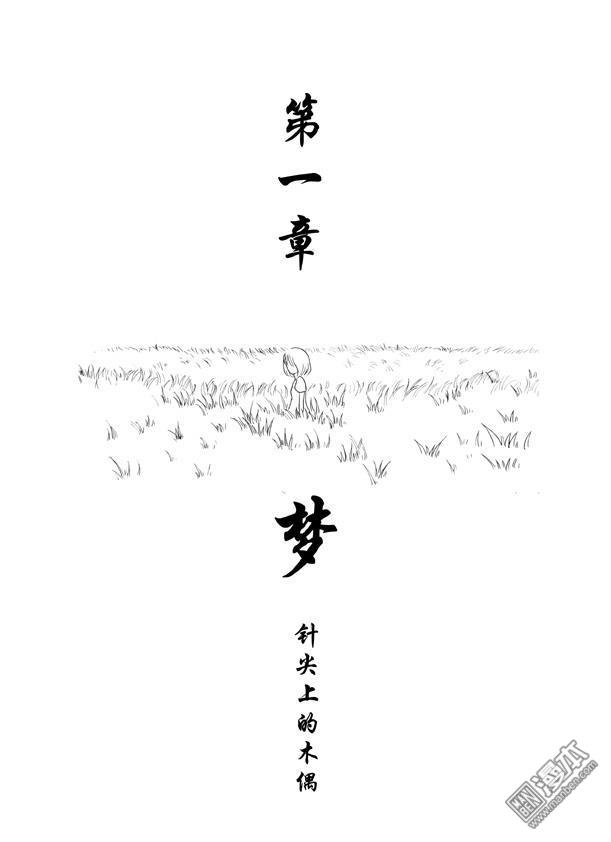 第一章
梦
针尖上的木偶
MAN
BEN
漫本
www.manben.com